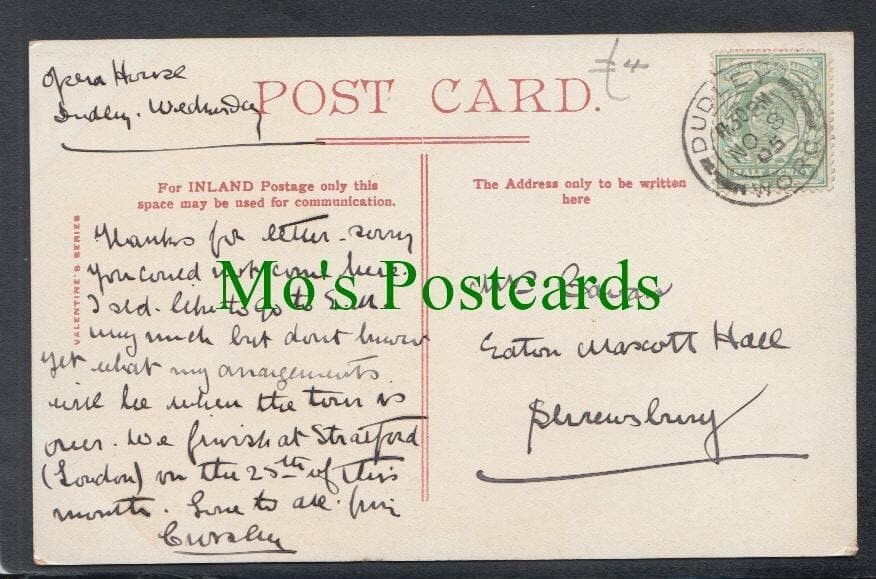 Opera House
Dudley. Wednesday
£4
POST CARD.
DUDLEY
11 30 PM
NO 8
05
WORC
HALF PENNY
For INLAND Postage only this
space may be used for communication.
The Address only to be written
here
VALENTINE'S SERIES
Thanks for letter - sorry
you could not come here.
I shd. like to go to
very much but don't know
yet what my arrangements
will be when the tour is
over. We finish at Stratford
(London) on the 25th of this
month. Love to all.
Mrs
Eaton Mascott Hall
Shrewsbury
Mo's Postcards